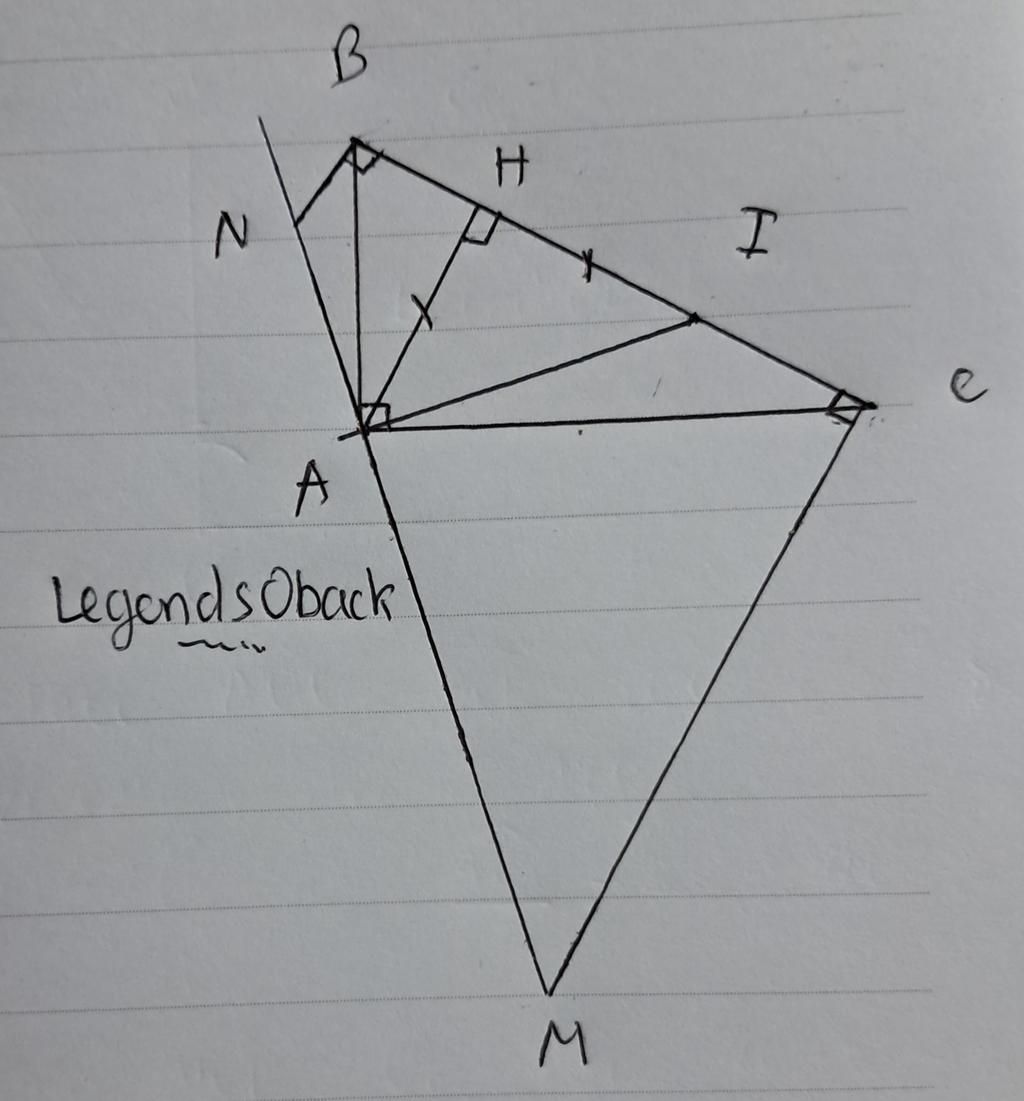 B
H
N
I
C
A
LegendsOback
M